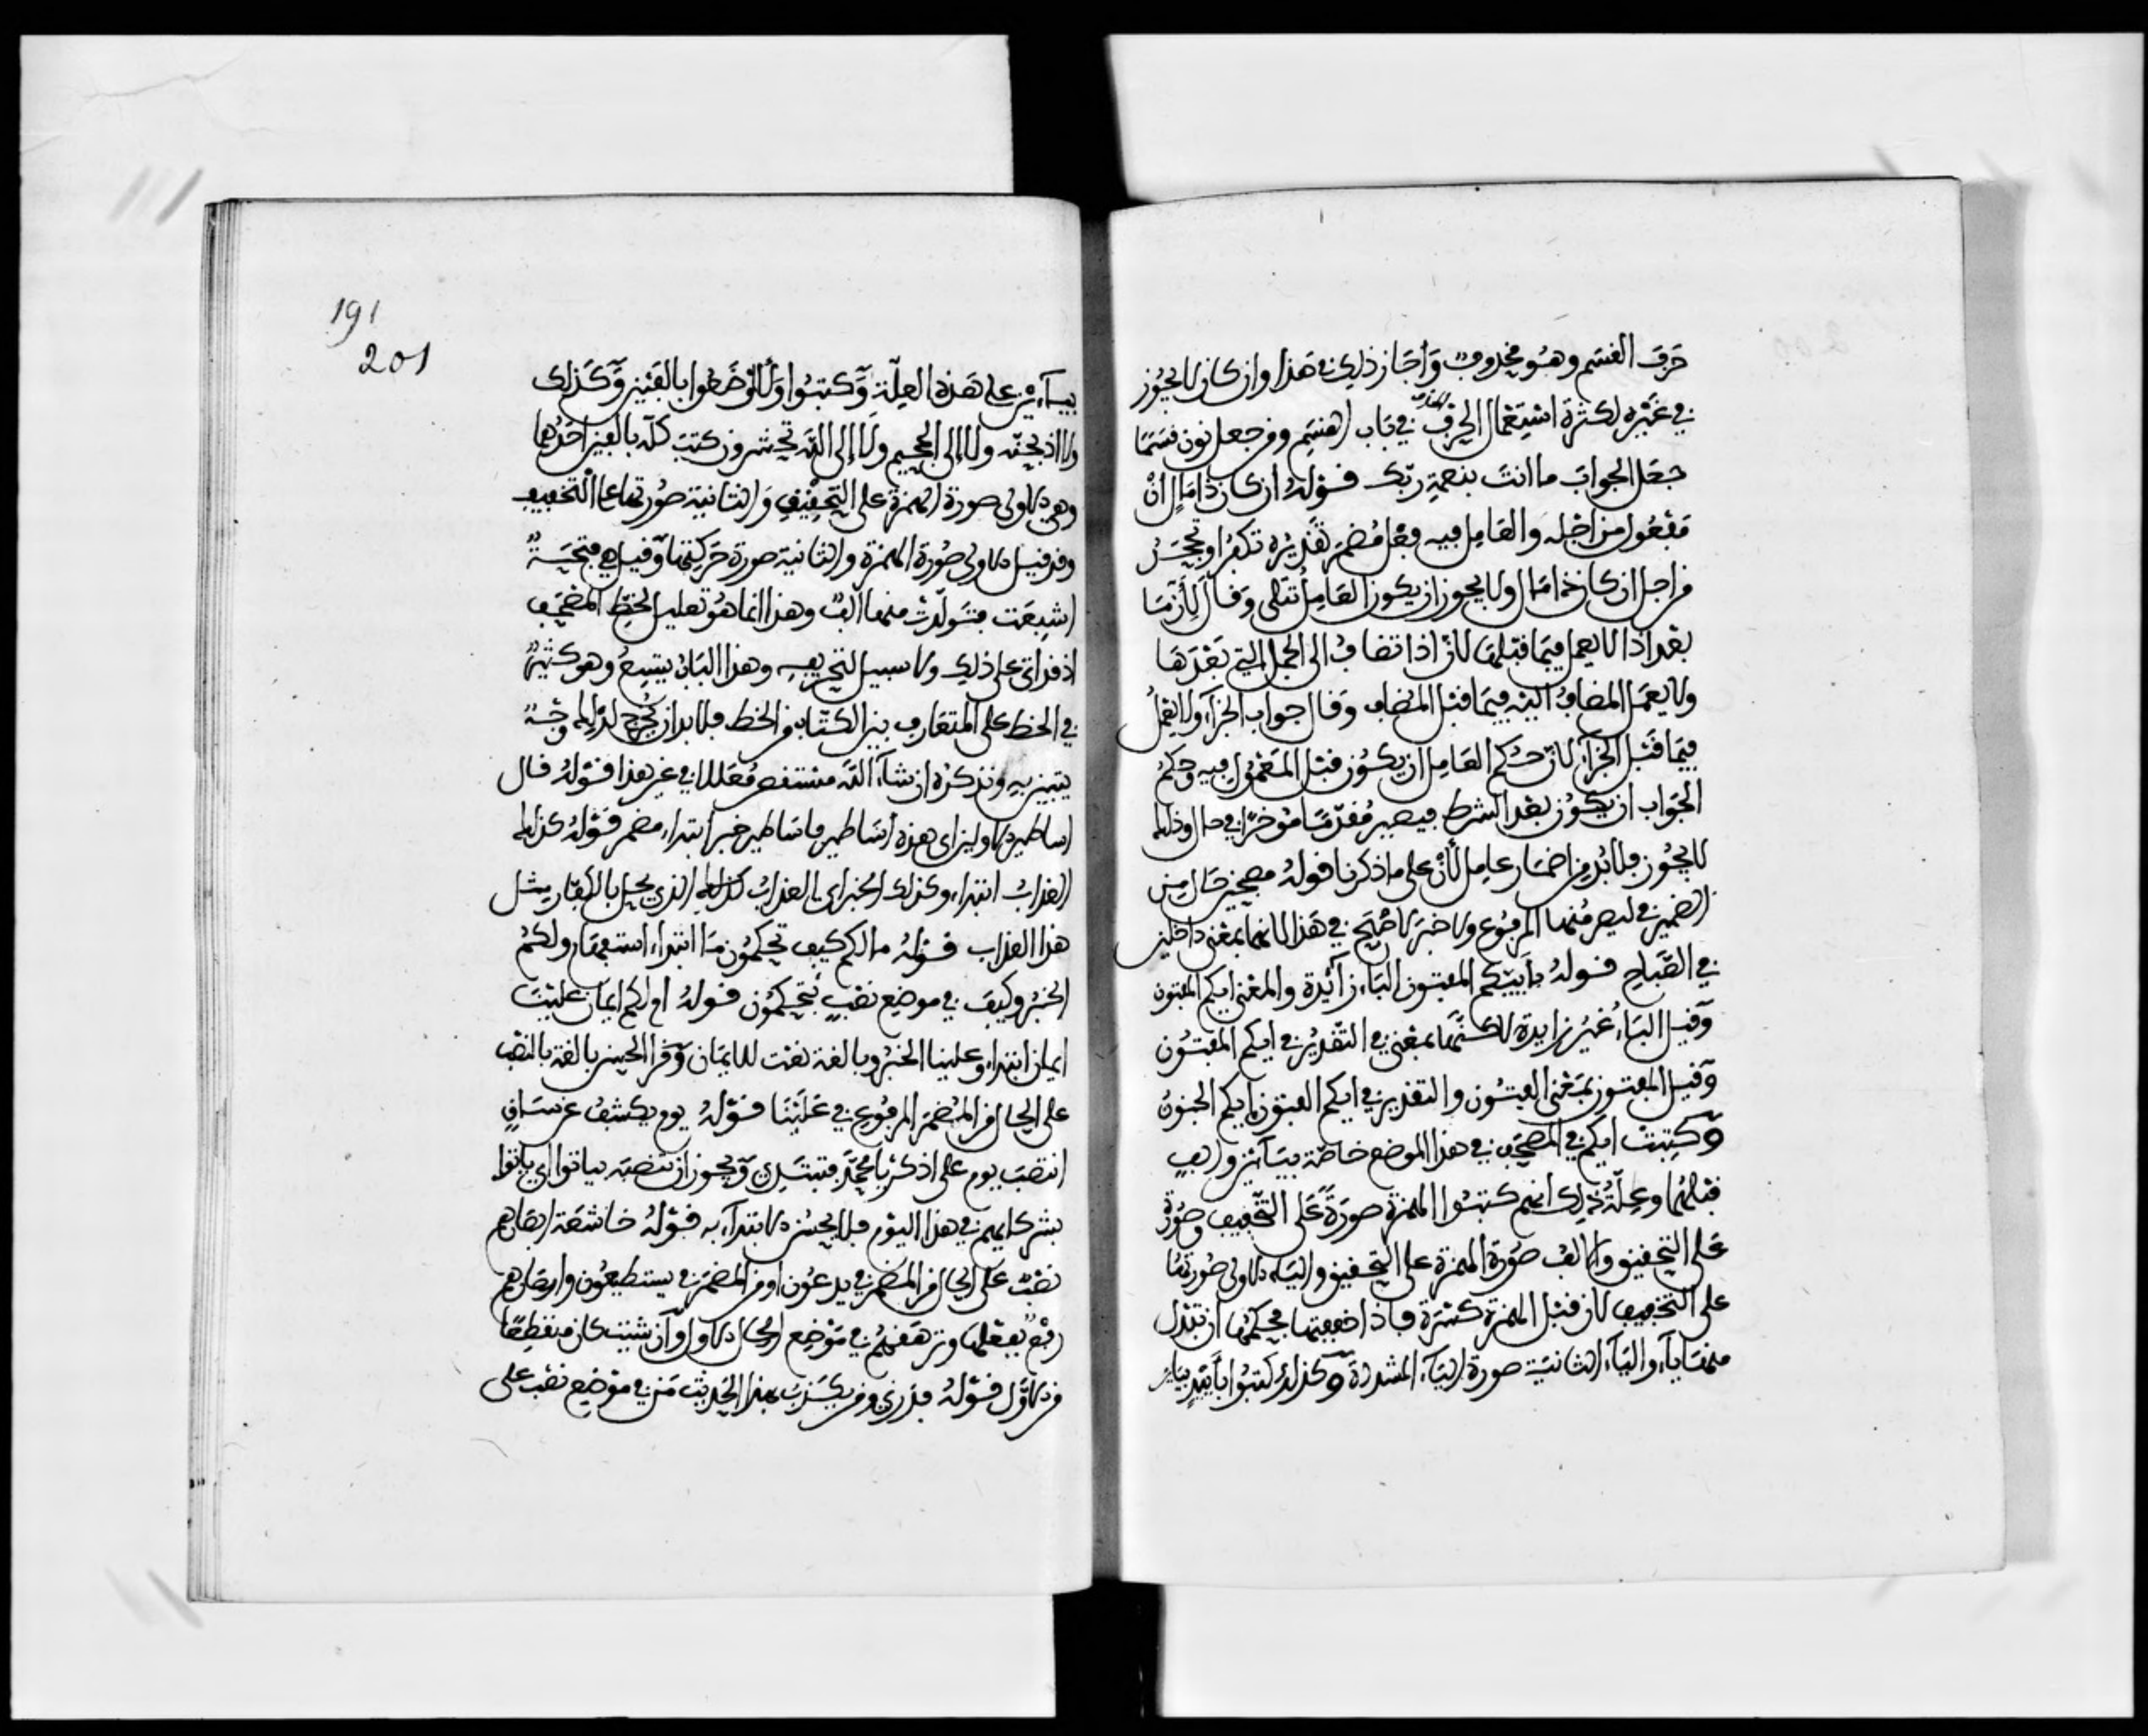 حرف القسم وهو محذوف وأجاز ذلك في هذا وان كان لا يجوز
في غيره لكثرة استعمال الحذف في باب القسم ومن جعل نون قسما
جعل الجواب ما انت بنعمة ربك قوله ان كان ذا مال أن
مفعول من اجله والعامل فيه فعل مضمر تقديره تكفر او تجحد
من اجل ان كان ذا مال ولا يجوز ان يكون العامل تتلى وقال لأن ما
بعد اذا لا يعمل فيما قبلها لأن اذا تضاف الى الجمل التي بعدها
ولا يعمل المضاف اليه فيما قبل المضاف وقال جواب الجزاء ولا يعمل
فيما قبل الجزاء لأن حكم العامل ان يكون قبل المعمول فيه وحكم
الجواب ان يكون بعد الشرط فيصير مقدما مؤخرا في حال وذلك
لا يجوز فلا بد من اضمار عامل لأن على ما ذكرنا قوله مصبحين حال من
الضمير في ليصرمنها المرفوع ولا خبر لأصبح في هذا لأنها بمعنى داخلين
في الصباح قوله بأييكم المفتون الباء زائدة والمعنى ايكم المفتون
وقيل الباء غير زايدة لكنها بمعنى في التقدير في ايكم المفتون
وقيل المفتون بمعنى الفتون والتقدير في ايكم الفتون اي ايكم الجنون
وكتبت ايكم في المصحف في هذا الموضع خاصة بياءين والف
قبلهما وعلة ذلك انهم كتبوا الهمزة صورة على التخفيف وصورة
على التحقيق والالف صورة الهمزة على التحقيق والياء الاولى صورتها
على التخفيف لان قبل الهمزة كسرة فاذا خففتها فحكمها ان تبدل
منها ياء والياء الثانية صورة الياء المشددة وكذلك كتبوا بأييد بياء
191
201
بياءين على هذه العلة وكتبوا ولأاوضعوا بالفين وكذلك
ولا اذبحنه ولا الى الجحيم ولا الى الله تحشرون كتب كله بالفين احداهما
وهي الاولى صورة الهمزة على التحقيق والثانية صورتها على التخفيف
وقد قيل الاولى صورة الهمزة والثانية صورة حركتها وقيل هي فتحة
اشبعت فتولدت منها الف وهذا انما هو تعليل لخط المصحف
اذ قد اتى على ذلك ولا سبيل لتحريفه وهذا الباب يتسع وهو كثير
في الخط على المتعارف بين الكتاب من الخط فلا بد ان يخرج لذلك وجه
يتبين به ونذكره ان شاء الله مستقصى معللا في غير هذا قوله قال
اساطير الاولين اي هذه أساطير فاساطير خبر ابتداء مضمر قوله كذلك
العذاب ابتداء وكذلك الخبر اي العذاب كذلك الذي يحل بالكفار مثل
هذا العذاب قوله ما لكم كيف تحكمون ما ابتداء استفهام ولكم
الخبر وكيف في موضع نصب بتحكمون قوله ام لكم ايمان علينا
ايمان ابتداء وعلينا الخبر وبالغة نعت للايمان وقرا الحسن بالغة بالنصب
على الحال من المضمر المرفوع في علينا قوله يوم يكشف عن ساق
انتصب يوم على اذكر يا محمد فتبتدئ ويجوز ان تنصبه بياتوا اي يأتوا
بشركايهم في هذا اليوم فلا يحسن الابتداء به قوله خاشعة ابصارهم
نصب على الحال من المضمر في يدعون او من المضمر في يستطيعون وابصارهم
رفع بفعلها وترهقهم في موضع الحال كالاول وان شئت كان منقطعا
من الاول قوله فذرني ومن يكذب بهذا الحديث من في موضع نصب على